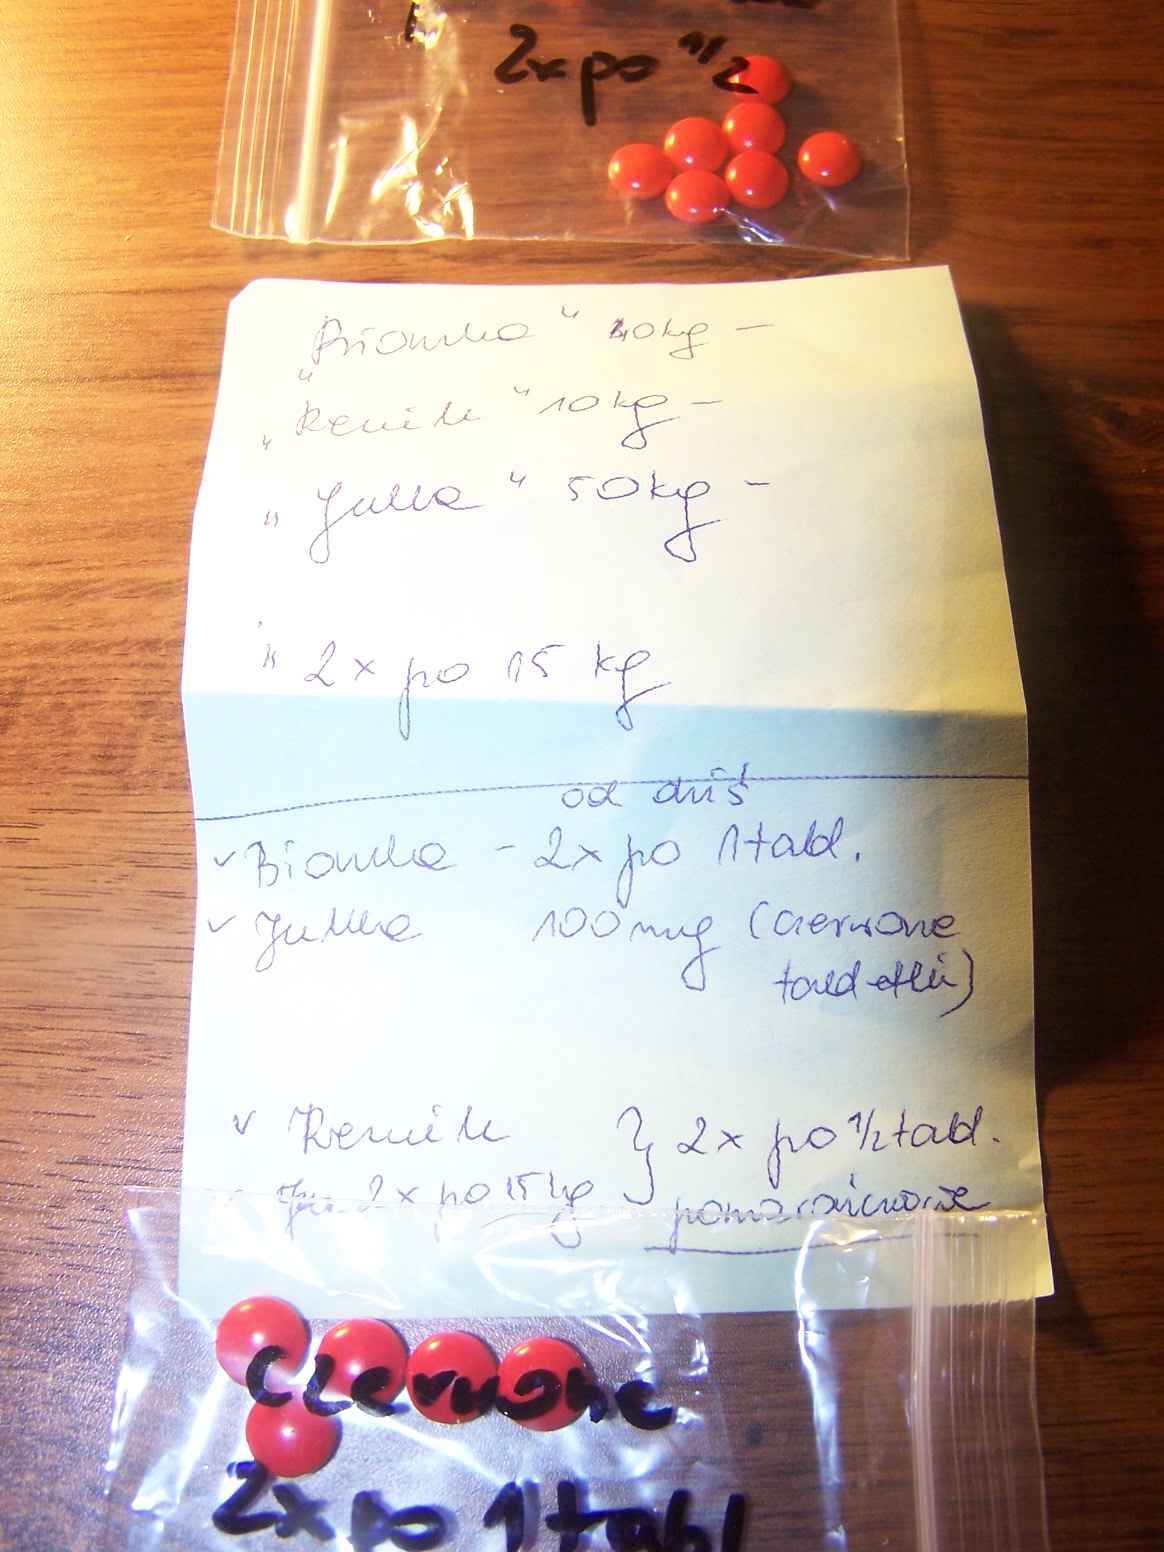 2x po 1/2
"Bianka" 40kg -
"Remik" 10kg -
" Julka " 50kg -
" 2x po 15 kg
od dziś
v Bianka - 2x po 1 tabl.
v Julka 100mg (czerwone
tabletki)
v Remik } 2x po 1/2 tabl.
2x po 15 kg pomarańczowe
czerwone
2x po 1 tabl